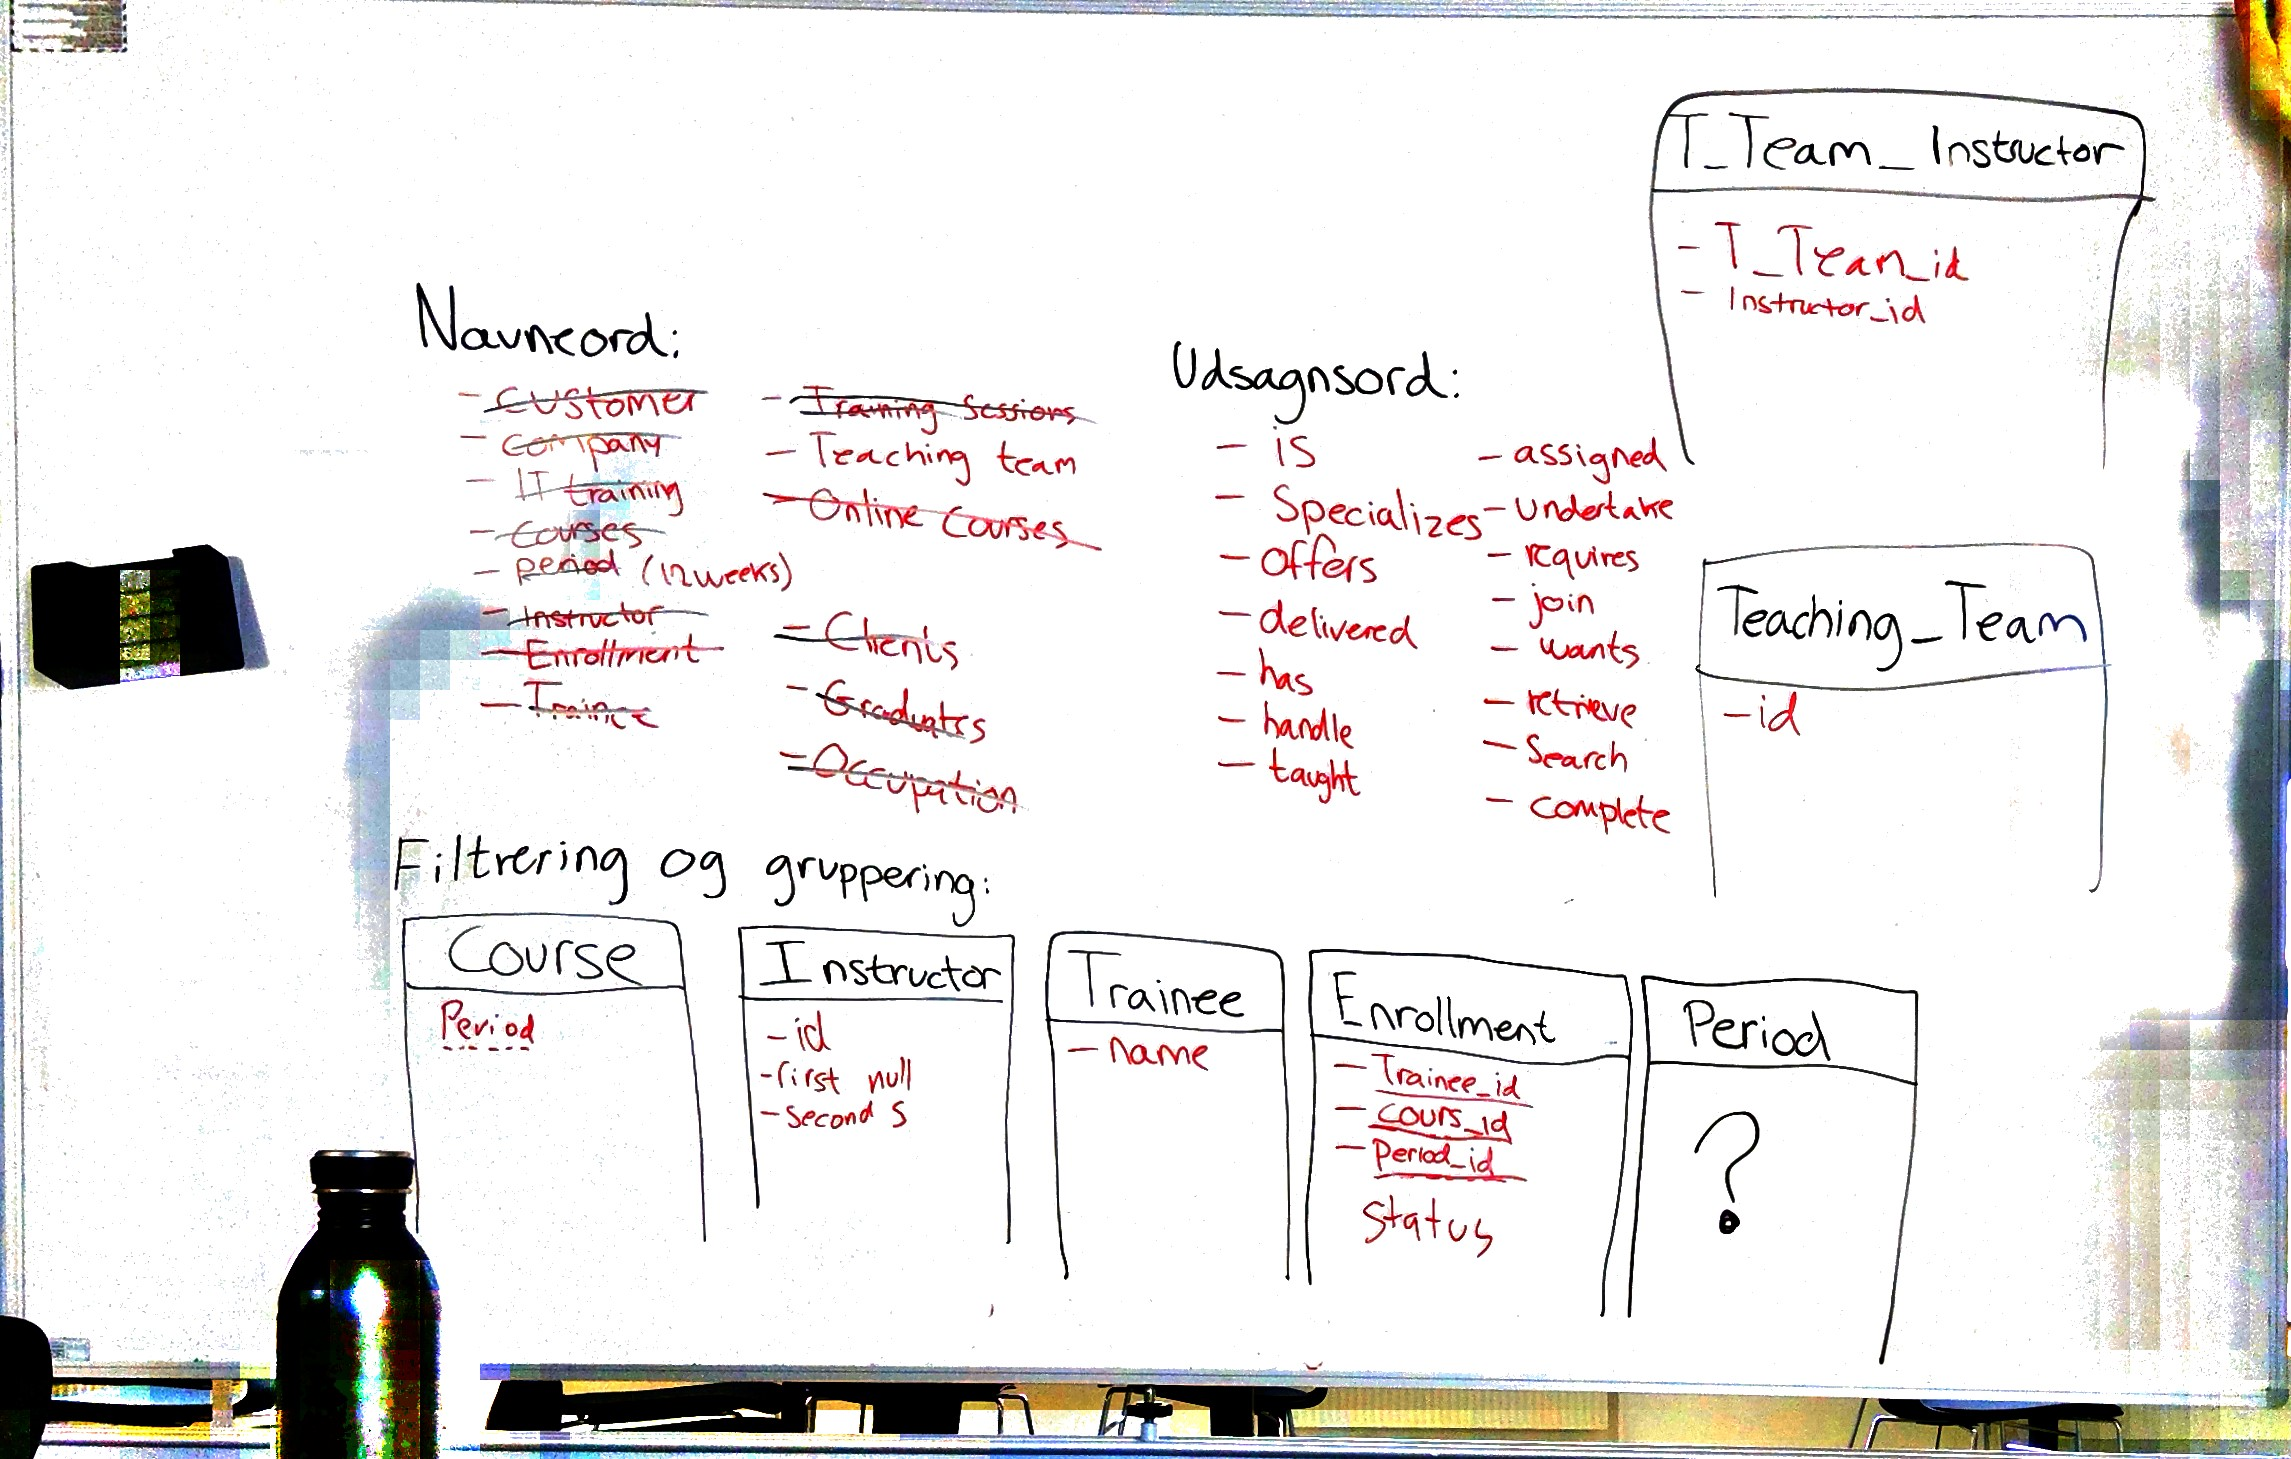 T_Team_Instructor
- T_Team_id
- Instructor_id
Navneord:
- Customer
- Company
- IT training
- Courses
- period (12 weeks)
- Instructor
- Enrollment
- Trainee
- Training Sessions
- Teaching team
- Online Courses
- Clients
- Graduates
- Occupation
Udsagnsord:
- is
- Specializes
- Offers
- delivered
- has
- handle
- taught
- assigned
- undertake
- requires
- join
- wants
- retrieve
- Search
- complete
Teaching_Team
- id
Filtrering og gruppering:
Course
Period
Instructor
- id
- first null
- second S
Trainee
- name
Enrollment
- Trainee_id
- cours_id
- Period_id
Status
Period
?